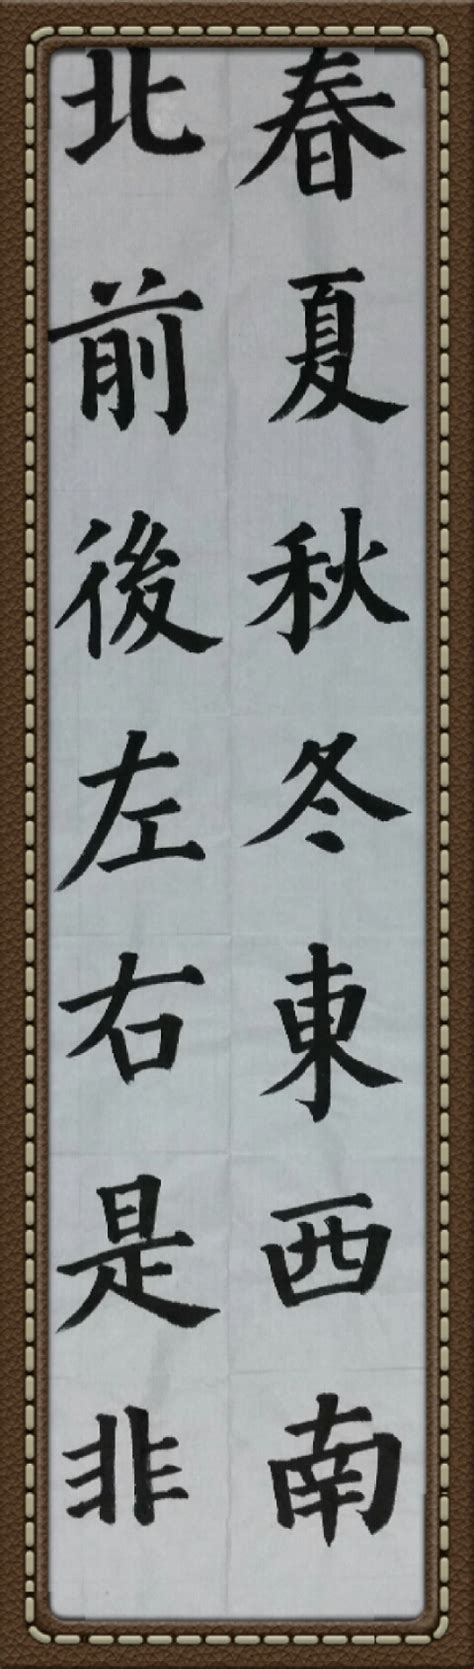 春夏秋冬東西南
北前後左右是非